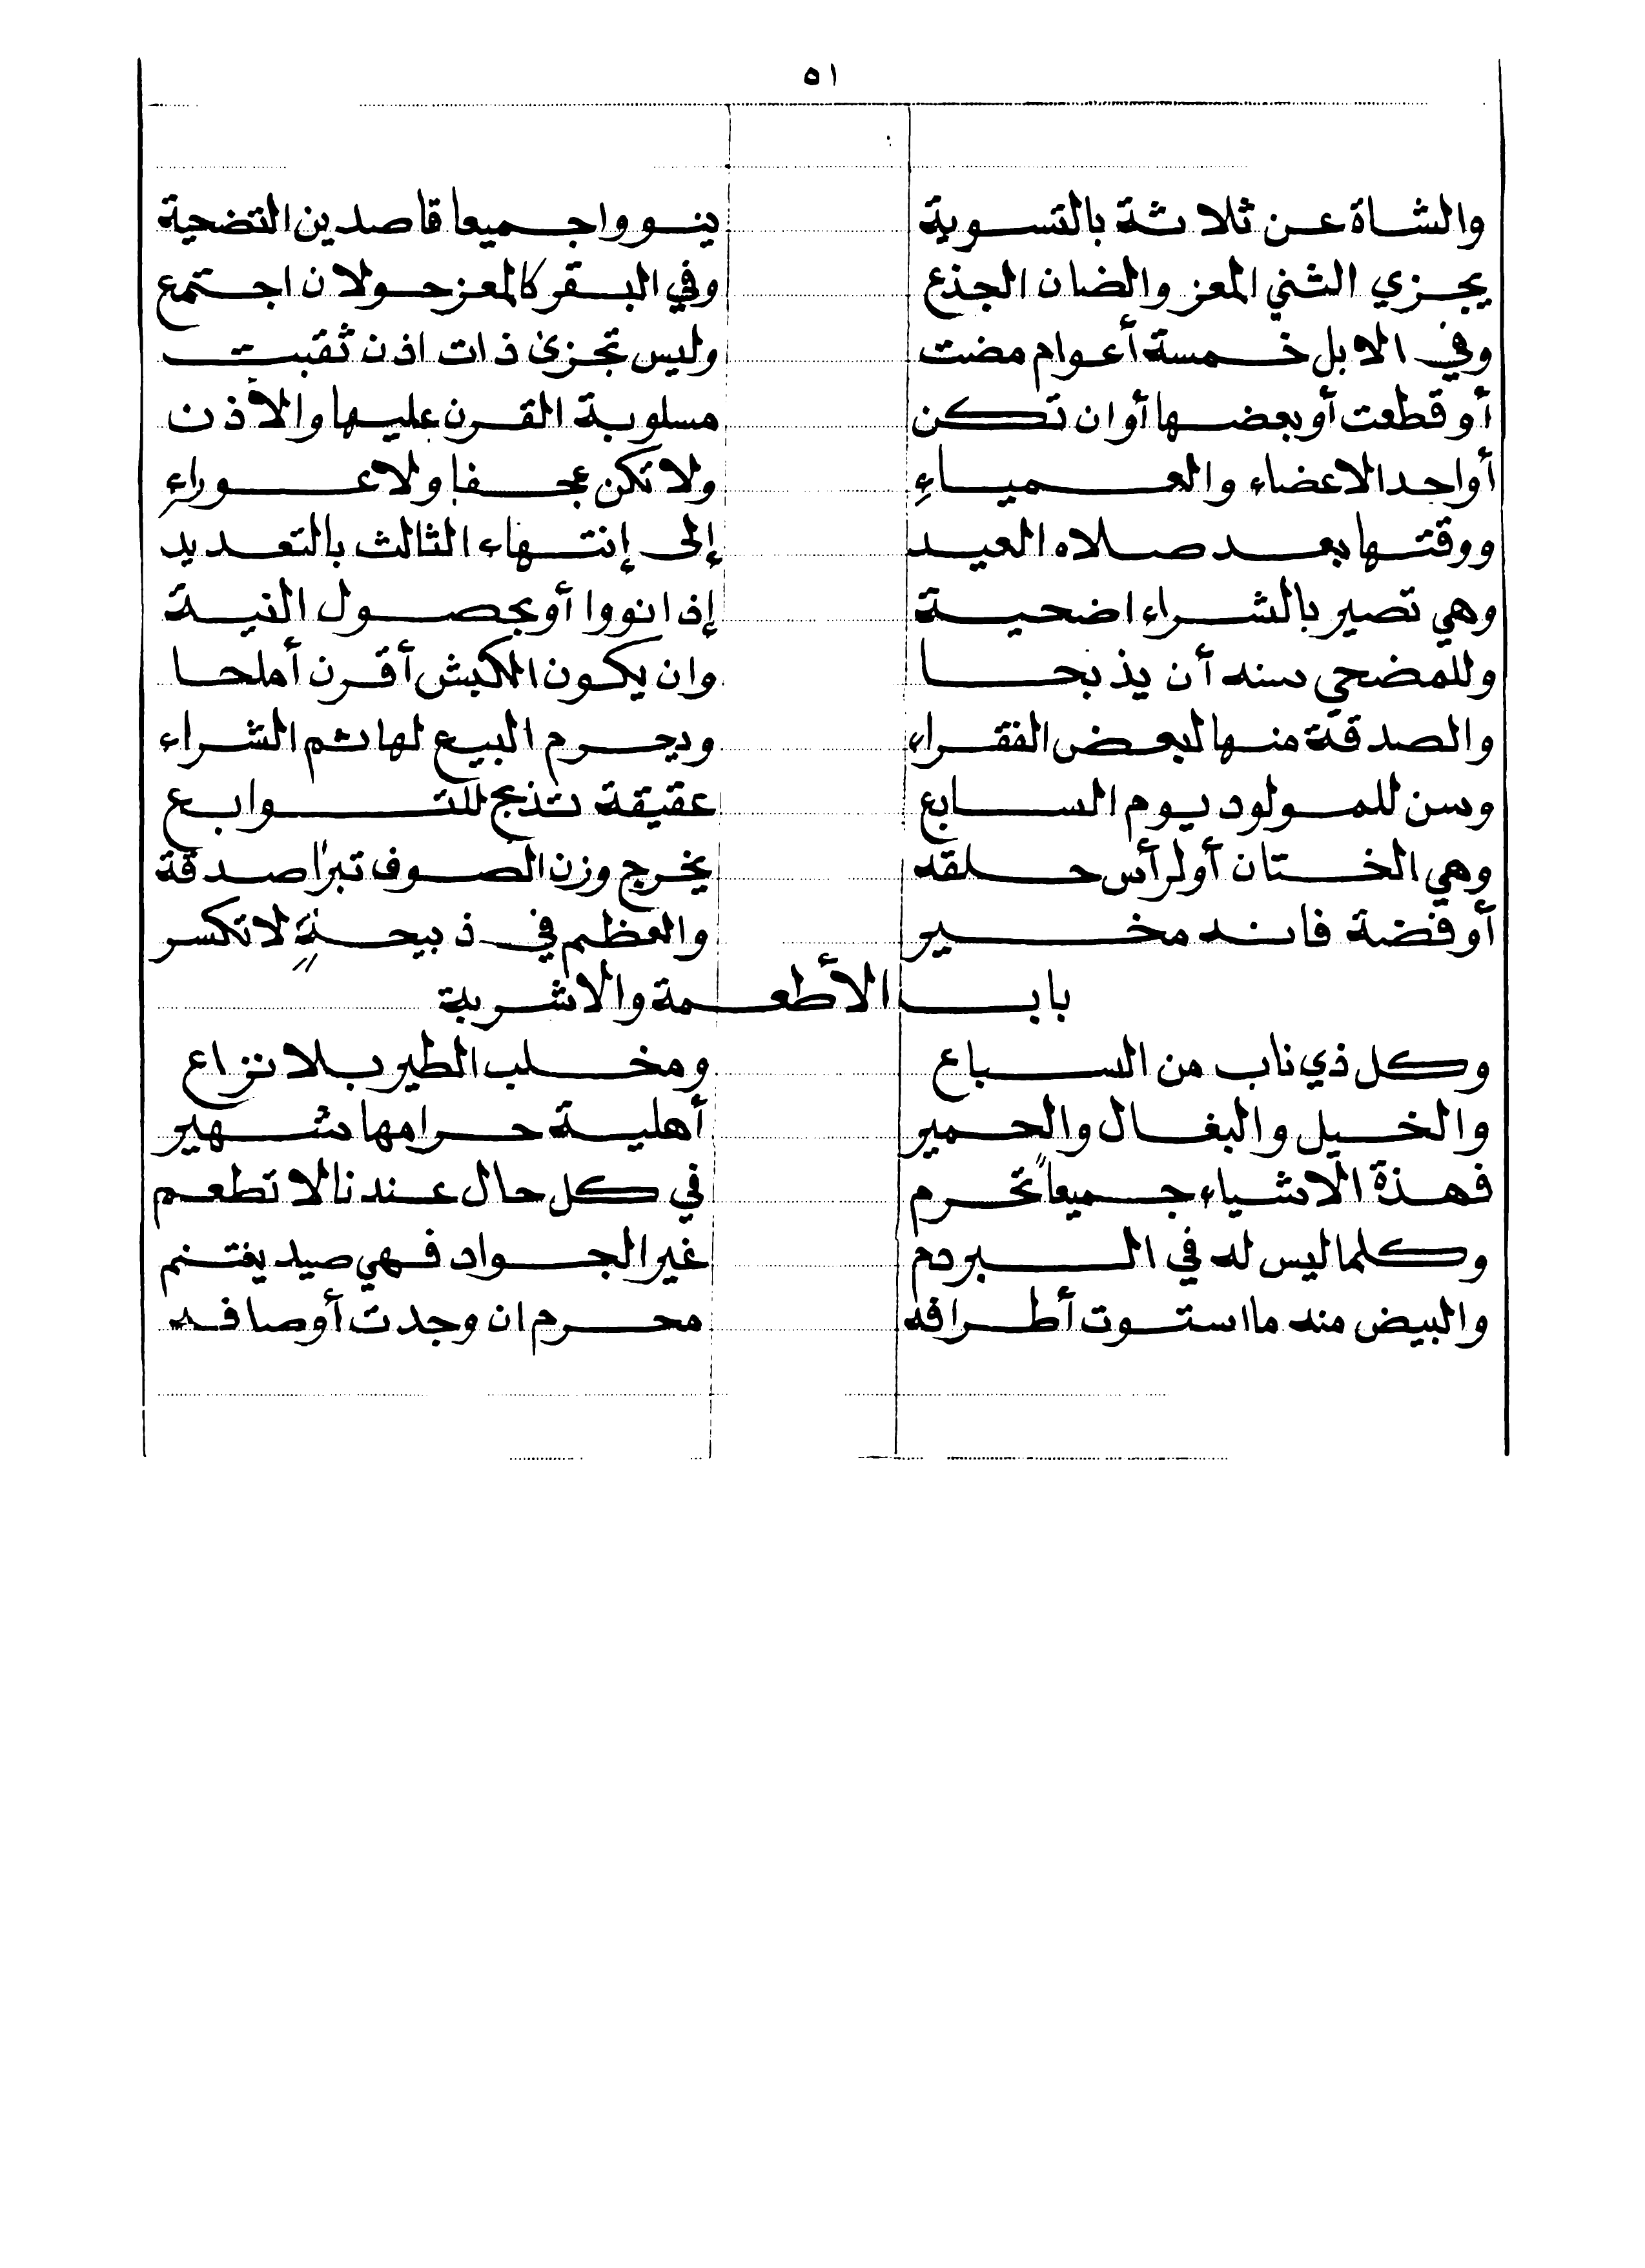 ٥١
والشاة عن ثلاثة بالتسوية ينووا جميعا قاصدين التضحية
يجزي الثني المعز والضان الجذع وفي البقر كالمعز حولان اجتمع
وفي الابل خمسة أعوام مضت وليس تجزئ ذات اذن ثقبت
أو قطعت أو بعضها أو ان تكن مسلوبة القرن عليها والأذن
أو احد الاعضاء والعمياءِ ولا تكن عجفا ولا عوراءِ
ووقتها بعد صلاه العيد إلى إنتهاء الثالث بالتعديد
وهي تصير بالشراء اضحية إذا نووا أو بحصول النية
وللمضحي سنه أن يذبحا وان يكون الكبش أقرن أملحا
والصدقة منها لبعض الفقراء ويحرم البيع لها ثم الشراء
وسن للمولود يوم السابع عقيقة تذبح للتوابع
وهي الختان أو لرأس حلقه يخرج وزن الصوف تبرًا صدقة
أو فضة فانه مخير والعظم في ذبيحةٍ لا تكسر
باب الأطعمة والاشربة
وكل ذي ناب من السباع ومخلب الطير بلا نزاع
والخيل والبغال والحمير أهلية حرامها شهير
فهذة الاشياء جميعاً تحرم في كل حال عندنا لا تطعم
وكلما ليس له في البر دم غير الجواد فهي صيد يغتنم
والبيض منه ما استوت أطرافه محرم ان وجدت أوصافه